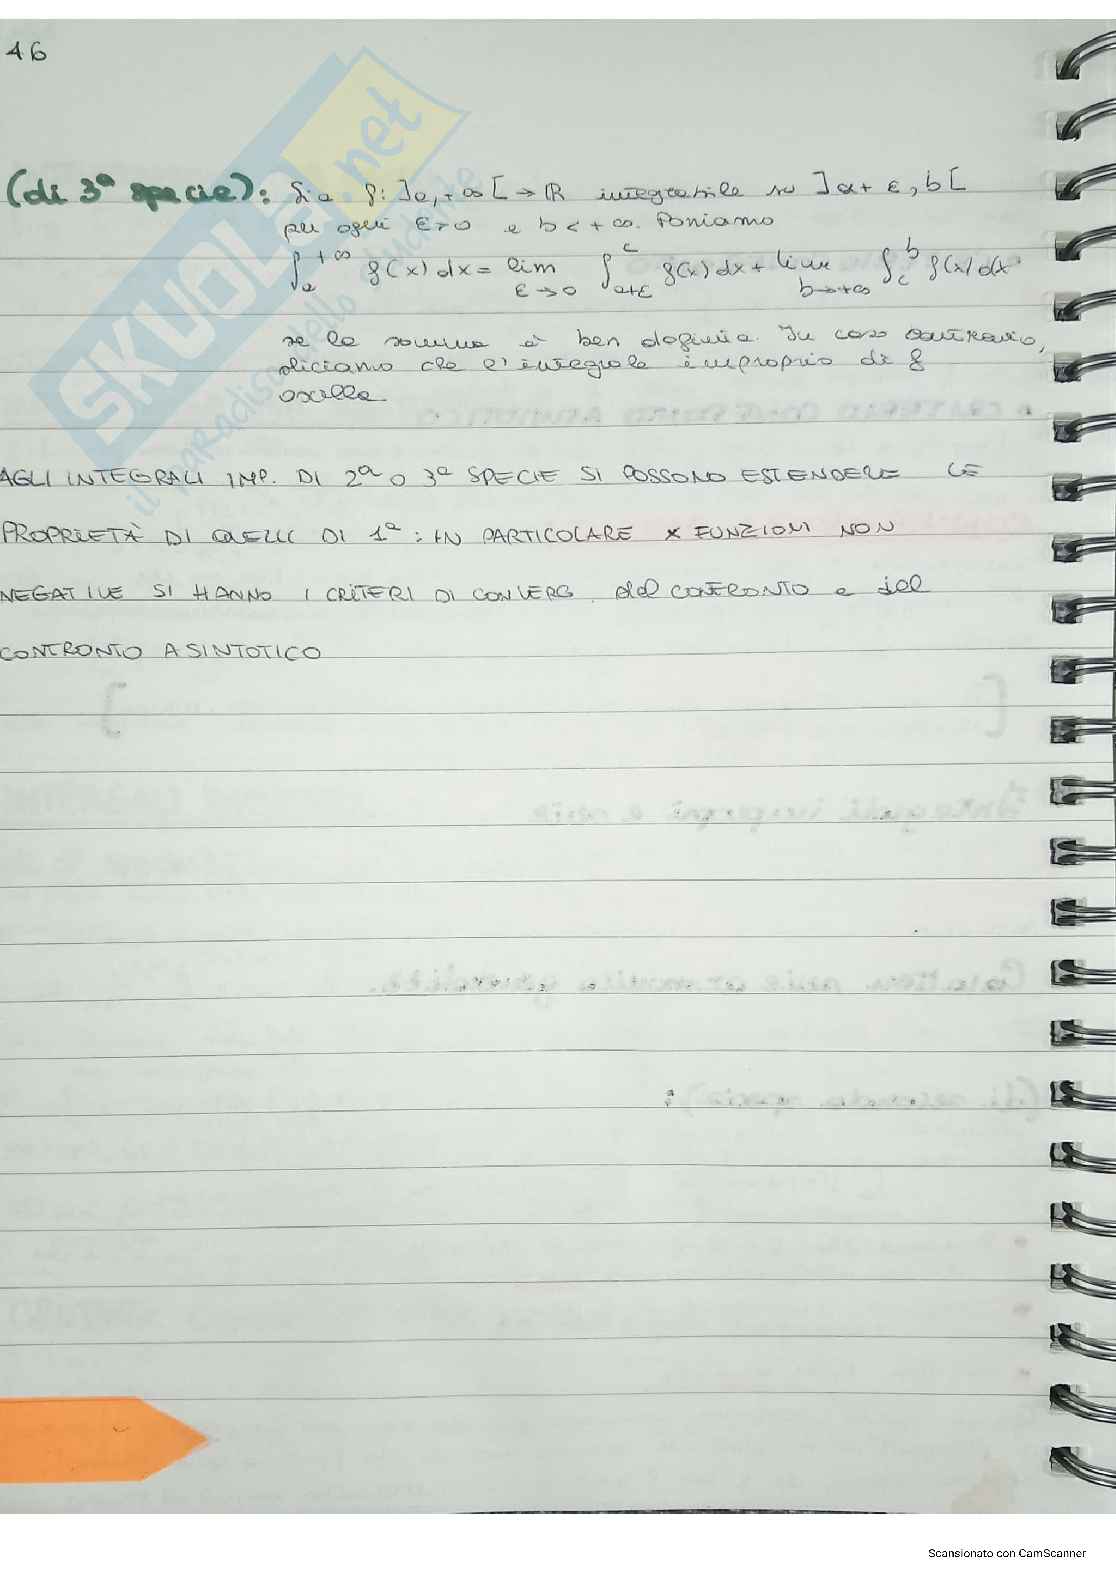 46
(di 3ª specie): Sia f: ]a, +∞[ → ℝ integrabile su ]a+ ε, b[
per ogni ε>0 e b < +∞. Poniamo
∫_a^{+∞} f(x) dx = lim_{ε→0} ∫_{a+ε}^c f(x) dx + lim_{b→+∞} ∫_c^b f(x) dx
se la somma è ben definita. In caso contrario,
diciamo che l'integrale improprio di f
oscilla.
AGLI INTEGRALI IMP. DI 2ª O 3ª SPECIE SI POSSONO ESTENDERE LE
PROPRIETÀ DI QUELLI DI 1ª: IN PARTICOLARE x FUNZIONI NON
NEGATIVE SI HANNO I CRITERI DI CONVERG. del CONFRONTO e del
CONFRONTO ASINTOTICO
SKUOLA.net
il paradiso dello studente
Scansionato con CamScanner